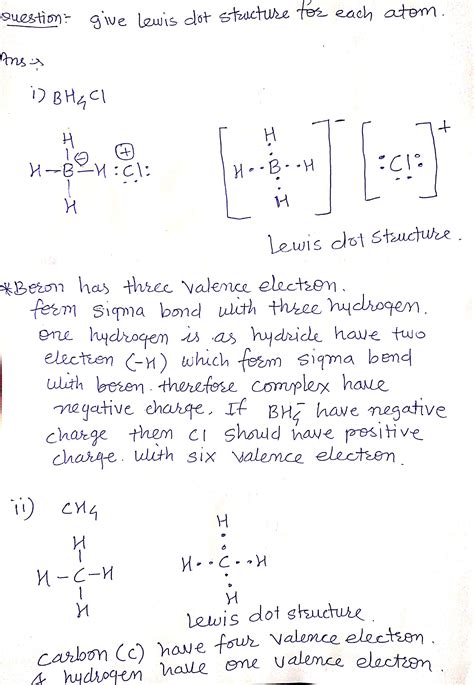 Question:- give Lewis dot structure for each atom.
Ans :→
i) BH4Cl
H
H-B-H :Cl:
⊖ ⊕
H
H
H··B··H
H
−
:Cl:
+
Lewis dot structure.
*Boron has three valence electron.
form sigma bond with three hydrogen.
one hydrogen is as hydride have two
electron (-H) which form sigma bond
with boron. therefore complex have
negative charge. If BH4- have negative
charge then Cl should have positive
charge. with six valence electron.
ii) CH4
H
H-C-H
H
H
H··C··H
H
Lewis dot structure.
carbon (C) have four valence electron.
& hydrogen have one valence electron.